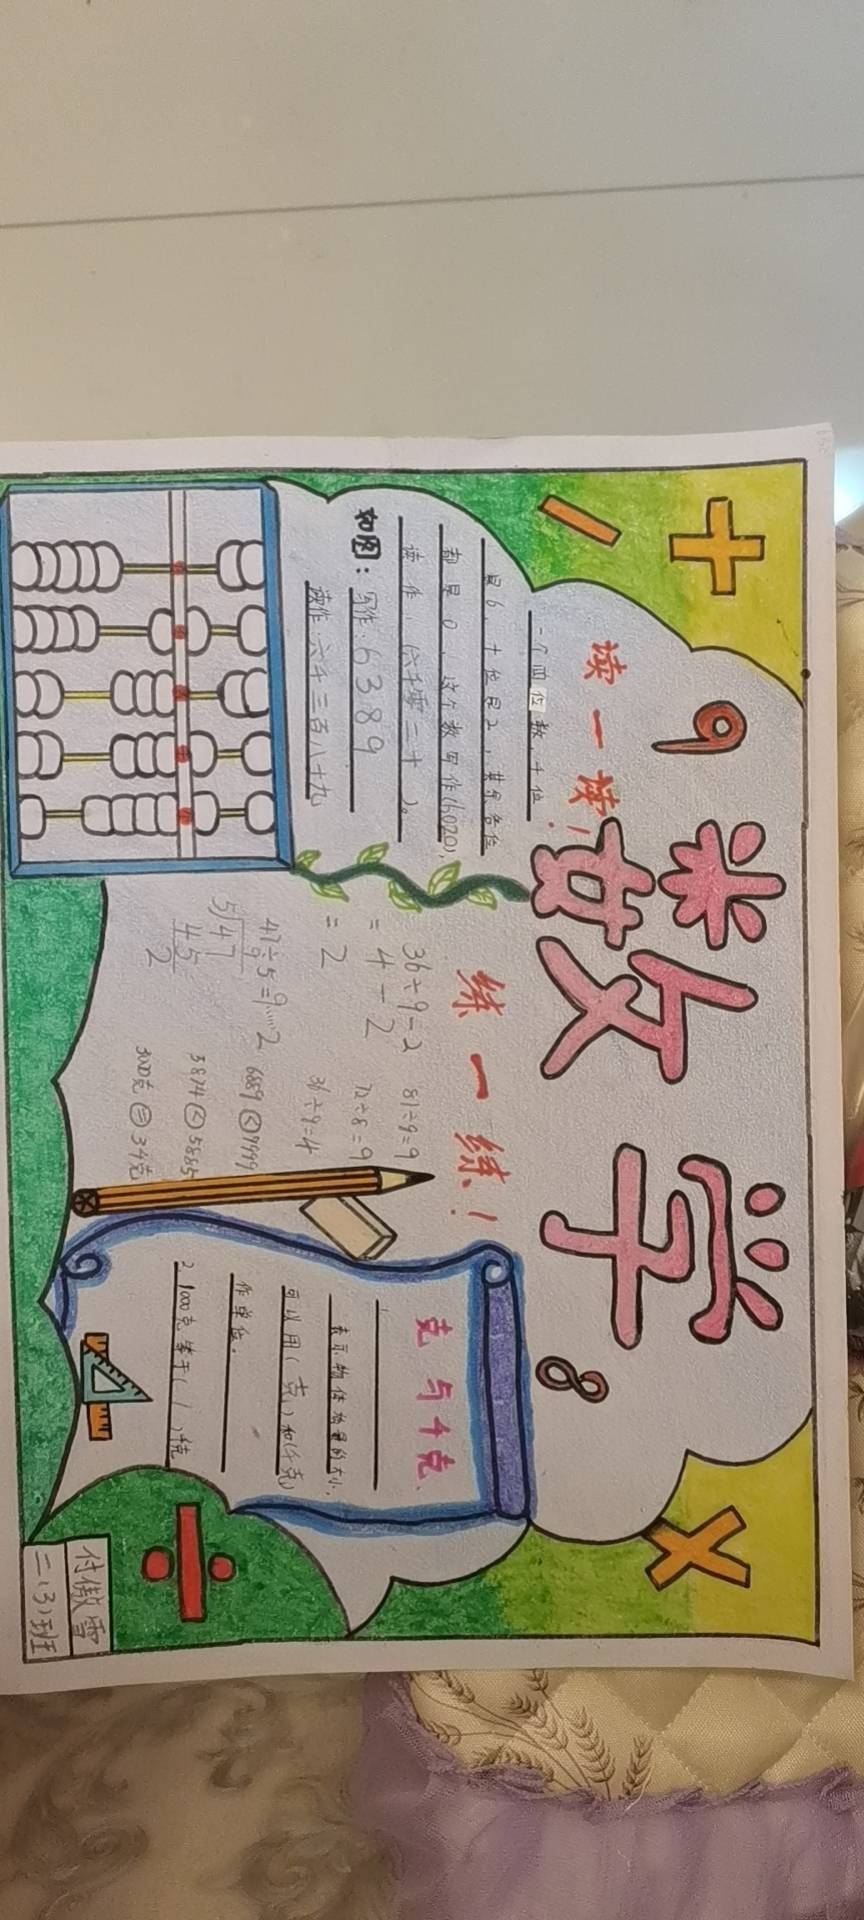 数学
9
8
读一读!
一个四位数,千位
是6,十位是2,其余各位
都是0,这个数写作(6020),
读作:(六千零二十)。
如图:写作:6389
读作:六千三百八十九
练一练!
36÷9-2
=4-2
=2
47÷5=9……2
9
5 47
45
2
81÷9=9
72÷8=9
36÷9=4
<7999
5874<5885
克与千克
1
表示物体质量的大小,
可以用(克)和(千克)
作单位。
2、1000克等于(1)千克
付傲雪
二(3)班